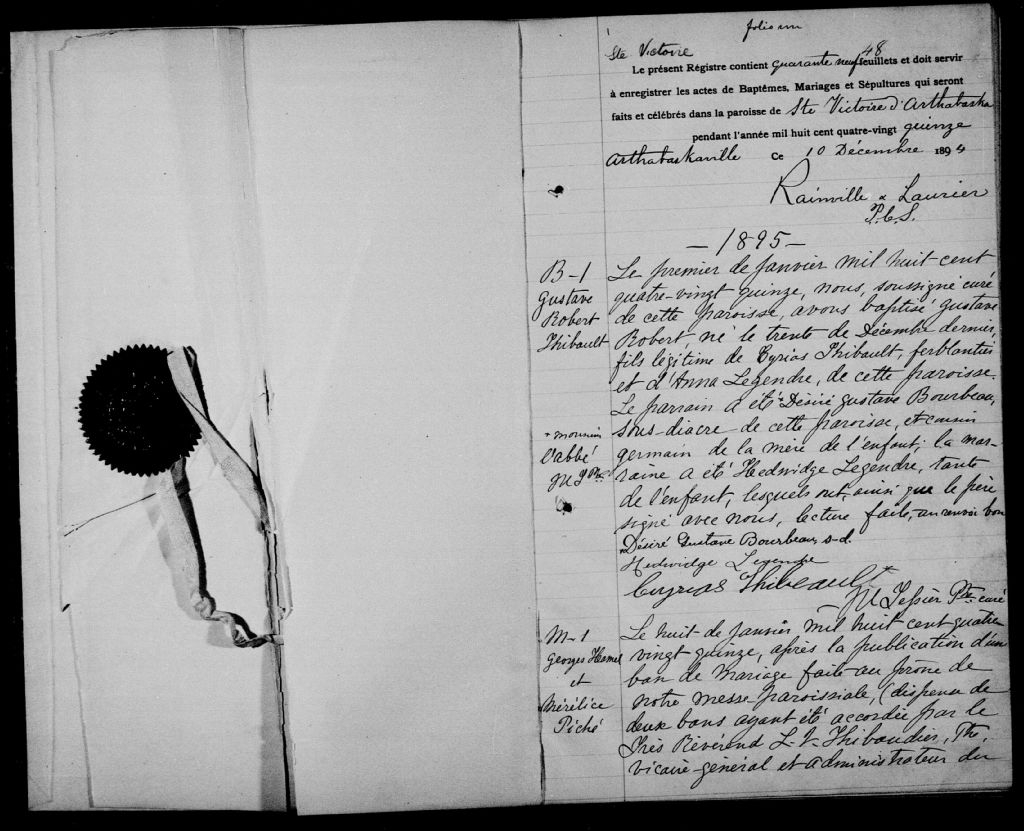 folio un
Ste Victoire
48
Le présent Régistre contient quarante neuf feuillets et doit servir
à enregistrer les actes de Baptêmes, Mariages et Sépultures qui seront
faits et célébrés dans la paroisse de Ste Victoire d'Arthabaska
pendant l'année mil huit cent quatre-vingt quinze
Arthabaskaville Ce 10 Décembre 1894
Rainville & Laurier
P.C.S.
— 1895 —
B-1
Gustave
Robert
Thibault
Le premier de Janvier mil huit cent
quatre-vingt quinze, nous, soussigné curé
de cette paroisse, avons baptisé Gustave
Robert, né le trente de Décembre dernier,
fils légitime de Cyrias Thibault, ferblantier
et d'Anna Legendre, de cette paroisse.
Le parrain a été Désiré Gustave Bourbeau,
sous-diacre de cette paroisse, et cousin
germain de la mère de l'enfant; la mar-
raine a été Hedwidge Legendre, tante
de l'enfant, lesquels ont, ainsi que le père
signé avec nous, lecture faite, un renvoi bon
+ monsieur
l'abbé
Désiré Gustave Bourbeau, s-d.
Hedwidge Legendre
Cyrias Thibeault
Ptre curé
M-1
Georges Hamel
et
Mérélice
Piché
Le huit de Janvier mil huit cent quatre
vingt quinze, après la publication d'un
ban de mariage faite au prône de
notre messe paroissiale, (dispense de
deux bans ayant été accordée par le
Très Révérend L. Thibaudier, Ptre,
vicaire-général et administrateur du